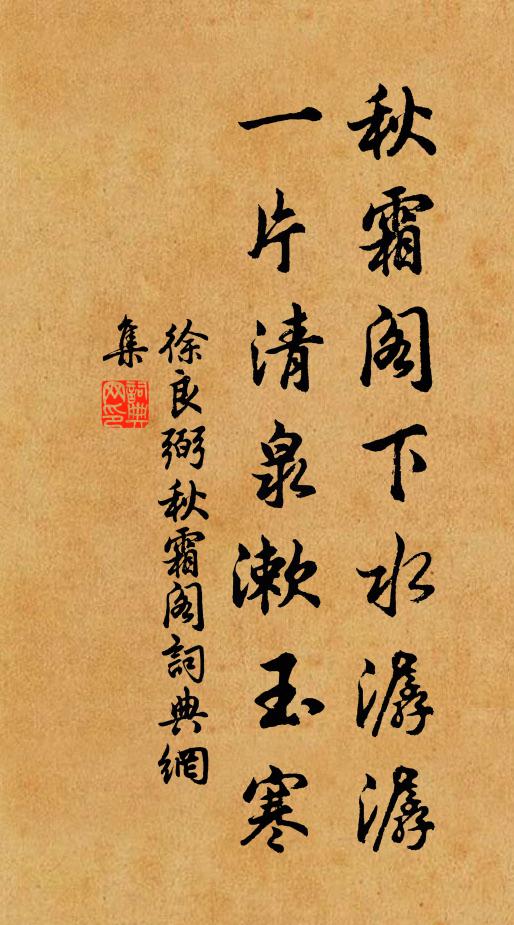 秋霜阁下水潺潺
一片清泉漱玉寒
徐良弼秋霜阁詞典網
集
詞典網印